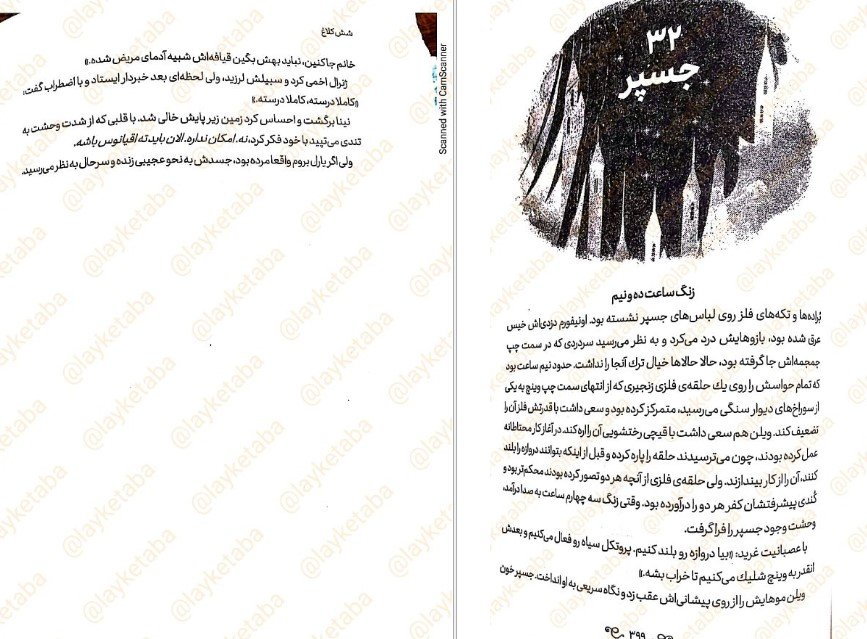 شش کلاغ
خانم جاکنین، نباید بهش بگین قیافه‌اش شبیه آدمای مریض شده.»
ژنرال اخمی کرد و سبیلش لرزید، ولی لحظه‌ای بعد خبردار ایستاد و با اضطراب گفت:
«کاملا درسته، کاملا درسته.»
نینا برگشت و احساس کرد زمین زیر پایش خالی شد. با قلبی که از شدت وحشت به
تندی می‌تپید با خود فکر کرد، نه. امکان نداره. الان باید ته اقیانوس باشه.
ولی اگر یارل بروم واقعا مرده بود، جسدش به نحو عجیبی زنده و سرحال به نظر می‌رسید.
Scanned with CamScanner
۳۲
جسپر
زنگ ساعت ده و نیم
بُراده‌ها و تکه‌های فلز روی لباس‌های جسپر نشسته بود. اونیفورم دزدی‌اش خیس
عرق شده بود، بازوهایش درد می‌کرد و به نظر می‌رسید سردردی که در سمت چپ
جمجمه‌اش جا گرفته بود، حالا حالاها خیال ترك آنجا را نداشت. حدود نیم ساعت بود
که تمام حواسش را روی یك حلقه‌ی فلزی زنجیری که از انتهای سمت چپ وینچ به یکی
از سوراخ‌های دیوار سنگی می‌رسید، متمرکز کرده بود و سعی داشت با قدرتش فلز آن را
تضعیف کند. ویلن هم سعی داشت با قیچی رختشویی آن را اره کند. در آغاز کار محتاطانه
عمل کرده بودند، چون می‌ترسیدند حلقه را پاره کرده و قبل از اینکه بتوانند دروازه را بلند
کنند، آن را از کار بیندازند. ولی حلقه‌ی فلزی از آنچه هر دو تصور کرده بودند محکم‌تر بود و
کُندی پیشرفتشان کفر هر دو را درآورده بود. وقتی زنگ سه چهارم ساعت به صدا درآمد،
وحشت وجود جسپر را فرا گرفت.
با عصبانیت غرید: «بیا دروازه رو بلند کنیم. پروتکل سیاه رو فعال می‌کنیم و بعدش
انقدر به وینچ شلیك می‌کنیم تا خراب بشه.»
ویلن موهایش را از روی پیشانی‌اش عقب زد و نگاه سریعی به او انداخت. جسپر خون
۳۹۹
@layketaba